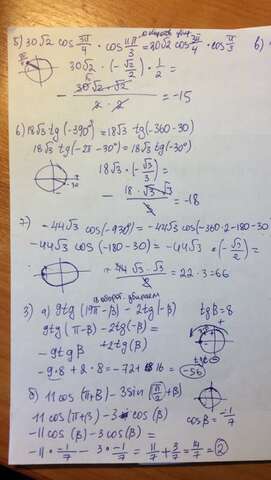 5) 30√2 cos 3π/4 · cos 11π/3 = 30√2 cos 3π/4 · cos π/3
30√2 · (-√2/2) · 1/2 =
- 30√2 · √2 / 2 · 2 = -15
6) 18√3 tg(-390°) = 18√3 tg(-360-30)
18√3 tg(-2π-30°) = 18√3 tg(-30°)
18√3 · (-√3/3) =
-30
- 18 · √3 · √3 / 3 = -18
7) -44√3 cos(-930°) = -44√3 cos(-360·2-180-30)
-44√3 cos(-180-30) = -44√3 · (-√3/2) =
44√3 · √3 / 2 = 22 · 3 = 66
3) а) 9tg(19π-β) - 2tg(-β) tgβ = 8
9tg(π-β) - 2tg(-β) =
- 9tgβ + 2tg(β)
-9·8 + 2·8 = -72 + 16 = -56
б) 11 cos(π+β) - 3 sin(π/2+β)
11 cos(π+β) - 3 cos(β) cosβ = -1/7
-11 cos(β) - 3 cos(β) =
-11 · -1/7 - 3 · -1/7 = 11/7 + 3/7 = 14/7 = 2